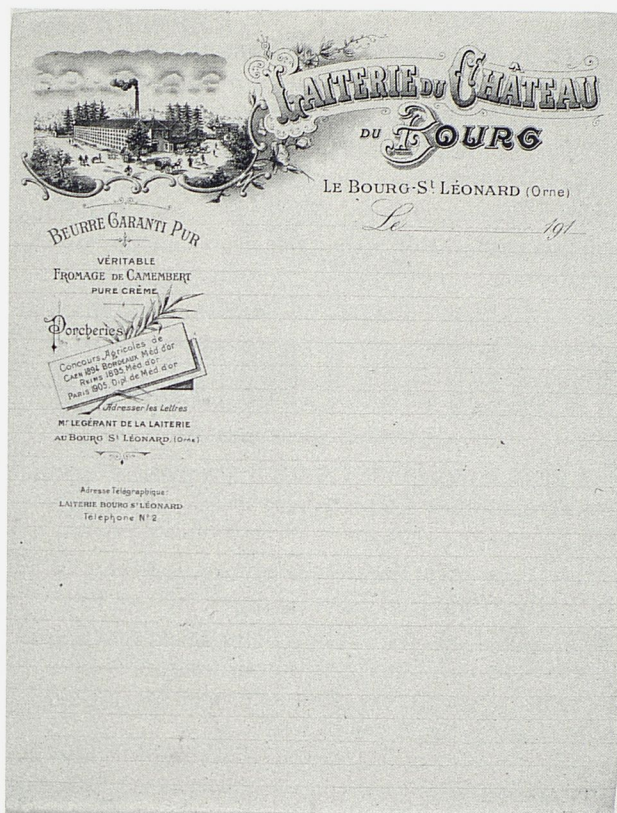 LAITERIE DU CHÂTEAU
DU BOURG
LE BOURG-St LÉONARD (Orne)
Le 191
BEURRE GARANTI PUR
VÉRITABLE
FROMAGE DE CAMEMBERT
PURE CRÈME
Porcheries
Concours Agricoles de
CAEN 1894 BORDEAUX Méd d'or
REIMS 1895 Méd d'or
PARIS 1905. Dipl. de Méd d'or
Adresser les Lettres
Mr LE GÉRANT DE LA LAITERIE
AU BOURG St LÉONARD, (Orne)
Adresse Télégraphique:
LAITERIE BOURG St LÉONARD
Téléphone No 2